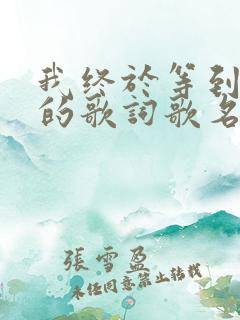 我终於等到
的歌詞歌名
張雪盈
未任同意禁止轉載